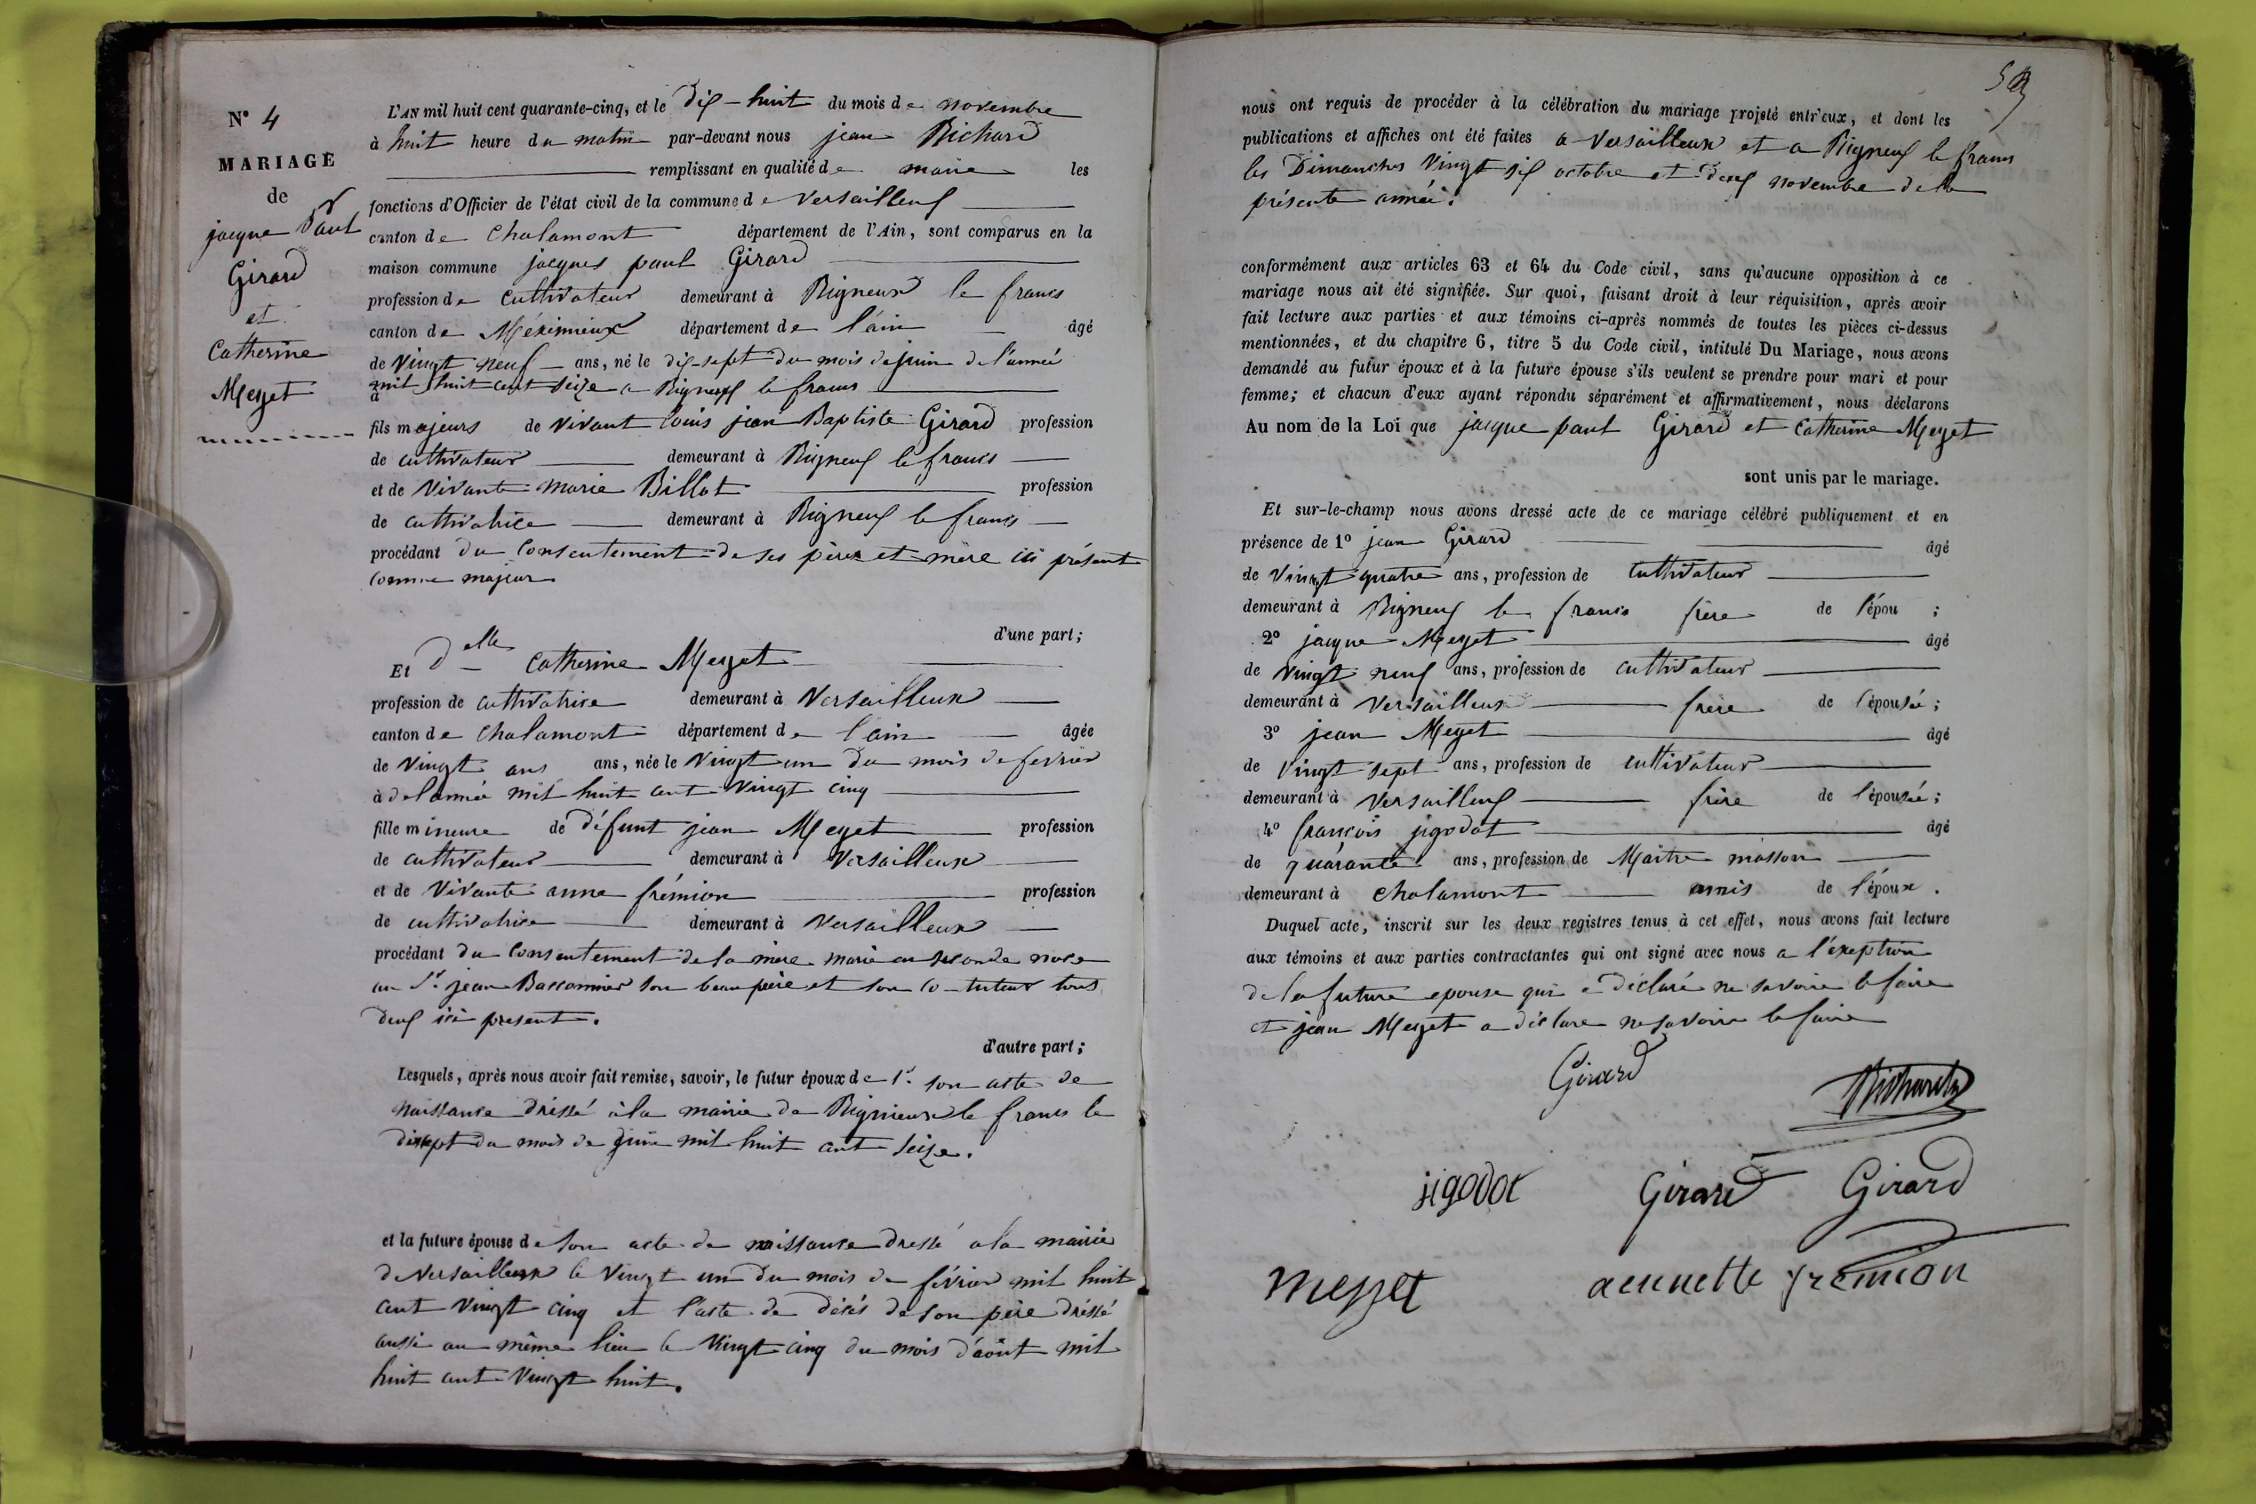 N° 4
MARIAGE
de
jacque Paul
Girard
et
Catherine
Meyzet
L'AN mil huit cent quarante-cinq, et le dix-huit du mois de novembre
à huit heure du matin par-devant nous jean Richard
remplissant en qualité de maire les
fonctions d'Officier de l'état civil de la commune de Versailleux
canton de Chalamont département de l'Ain, sont comparus en la
maison commune jacques paul Girard
profession de Cultivateur demeurant à Rigneux le francs
canton de Méximieux département de l'ain âgé
de Vingt neuf ans, né le dix-sept du mois de juin de l'année
à mil huit cent seize a Rigneux le francs
fils majeurs de vivant Louis jean Baptiste Girard profession
de cultivateur demeurant à Rigneux le francs
et de vivante marie Billot profession
de cultivatrice demeurant à Rigneux le francs
procédant du Consentement de ses père et mère ici présent
comme majeur
d'une part;
Et Delle Catherine Meyzet
profession de cultivatrice demeurant à Versailleux
canton de Chalamont département de l'ain âgée
de vingt ans ans, née le vingt un du mois de fevrier
à de l'année mil huit cent vingt cinq
fille mineure de défunt jean Meyzet profession
de cultivateur demeurant à Versailleux
et de vivante anne frémion profession
de cultivatrice demeurant à Versailleux
procédant du Consentement de la mère marié en seconde noce
au Sr. jean Bassonnier son beau père et son co-tuteur tous
deux ici present.
d'autre part;
Lesquels, après nous avoir fait remise, savoir, le futur époux de 1°. son acte de
naissance dréssé à la mairie de Rignieux le francs le
dixsept du mois de juin mil huit cent seize.
et la future épouse de son acte de naissance dressé a la mairie
de Versailleux le vingt un du mois de février mil huit
cent vingt cinq et l'acte de décés de son père dréssé
aussi au même lieu le vingt cinq du mois d'août mil
huit cent vingt huit.
nous ont requis de procéder à la célébration du mariage projeté entr'eux, et dont les
publications et affiches ont été faites a Versailleux et a Rigneux le francs
les Dimanches Vingt six octobre et deux novembre de la
présente année.
conformément aux articles 63 et 64 du Code civil, sans qu'aucune opposition à ce
mariage nous ait été signifiée. Sur quoi, faisant droit à leur réquisition, après avoir
fait lecture aux parties et aux témoins ci-après nommés de toutes les pièces ci-dessus
mentionnées, et du chapitre 6, titre 5 du Code civil, intitulé Du Mariage, nous avons
demandé au futur époux et à la future épouse s'ils veulent se prendre pour mari et pour
femme; et chacun d'eux ayant répondu séparément et affirmativement, nous déclarons
Au nom de la Loi que jacque paul Girard et Catherine Meyzet
sont unis par le mariage.
Et sur-le-champ nous avons dressé acte de ce mariage célébré publiquement et en
présence de 1° jean Girard âgé
de vingt quatre ans, profession de Cultivateur
demeurant à Rigneux le francs frère de l'épou ;
2° jacque Meyzet âgé
de vingt neuf ans, profession de cultivateur
demeurant à Versailleux frère de l'épousée;
3° jean Meyzet âgé
de vingt sept ans, profession de cultivateur
demeurant à Versailleux frère de l'épousée;
4° françois jigodot âgé
de quarante ans, profession de Maitre masson
demeurant à Chalamont amis de l'époux.
Duquel acte, inscrit sur les deux registres tenus à cet effet, nous avons fait lecture
aux témoins et aux parties contractantes qui ont signé avec nous a l'exeption
de la future epouse qui a déclaré ne savoire le faire
et jean Meyzet a déclare ne savoire le faire
Girard
Richard
jigodot Girard Girard
meyzet aennette fremion